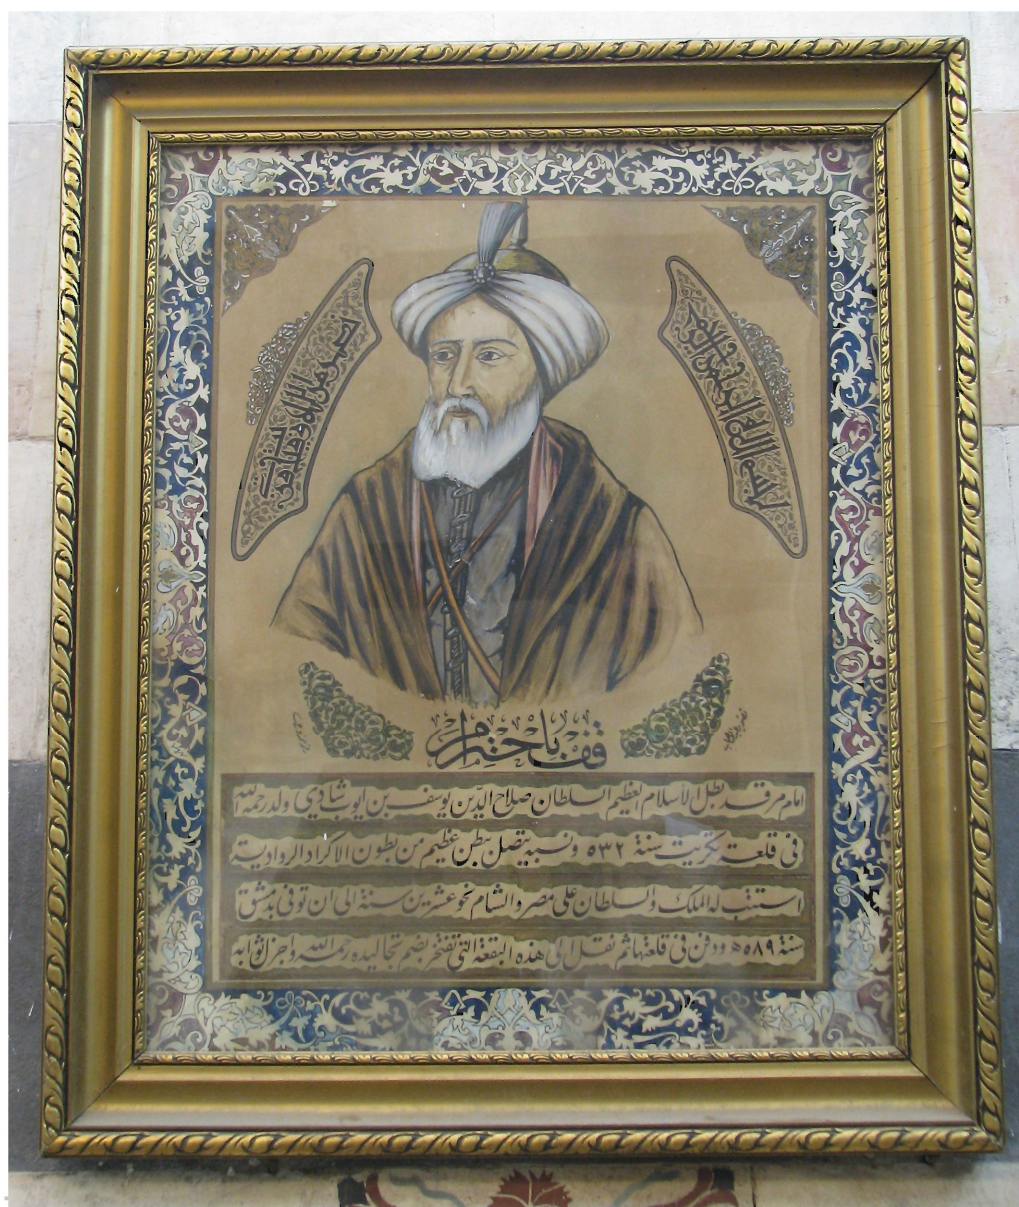 قف باحترام
امام مرقد بطل الاسلام العظيم السلطان صلاح الدين يوسف بن ايوب شادي ولد رحمه الله
في قلعة تكريت سنة ٥٣٢ ونسبه يتصل ببطن عظيم من بطون الاكراد الروادية
استتب له الملك والسلطان على مصر والشام نحو عشرين سنة الى ان توفي بدمشق
سنة ٥٨٩ه ودفن في قلعتها ثم نقل الى هذه البقعة التي تفتخر بضم تجاليده رحمه الله واجزل ثوابه